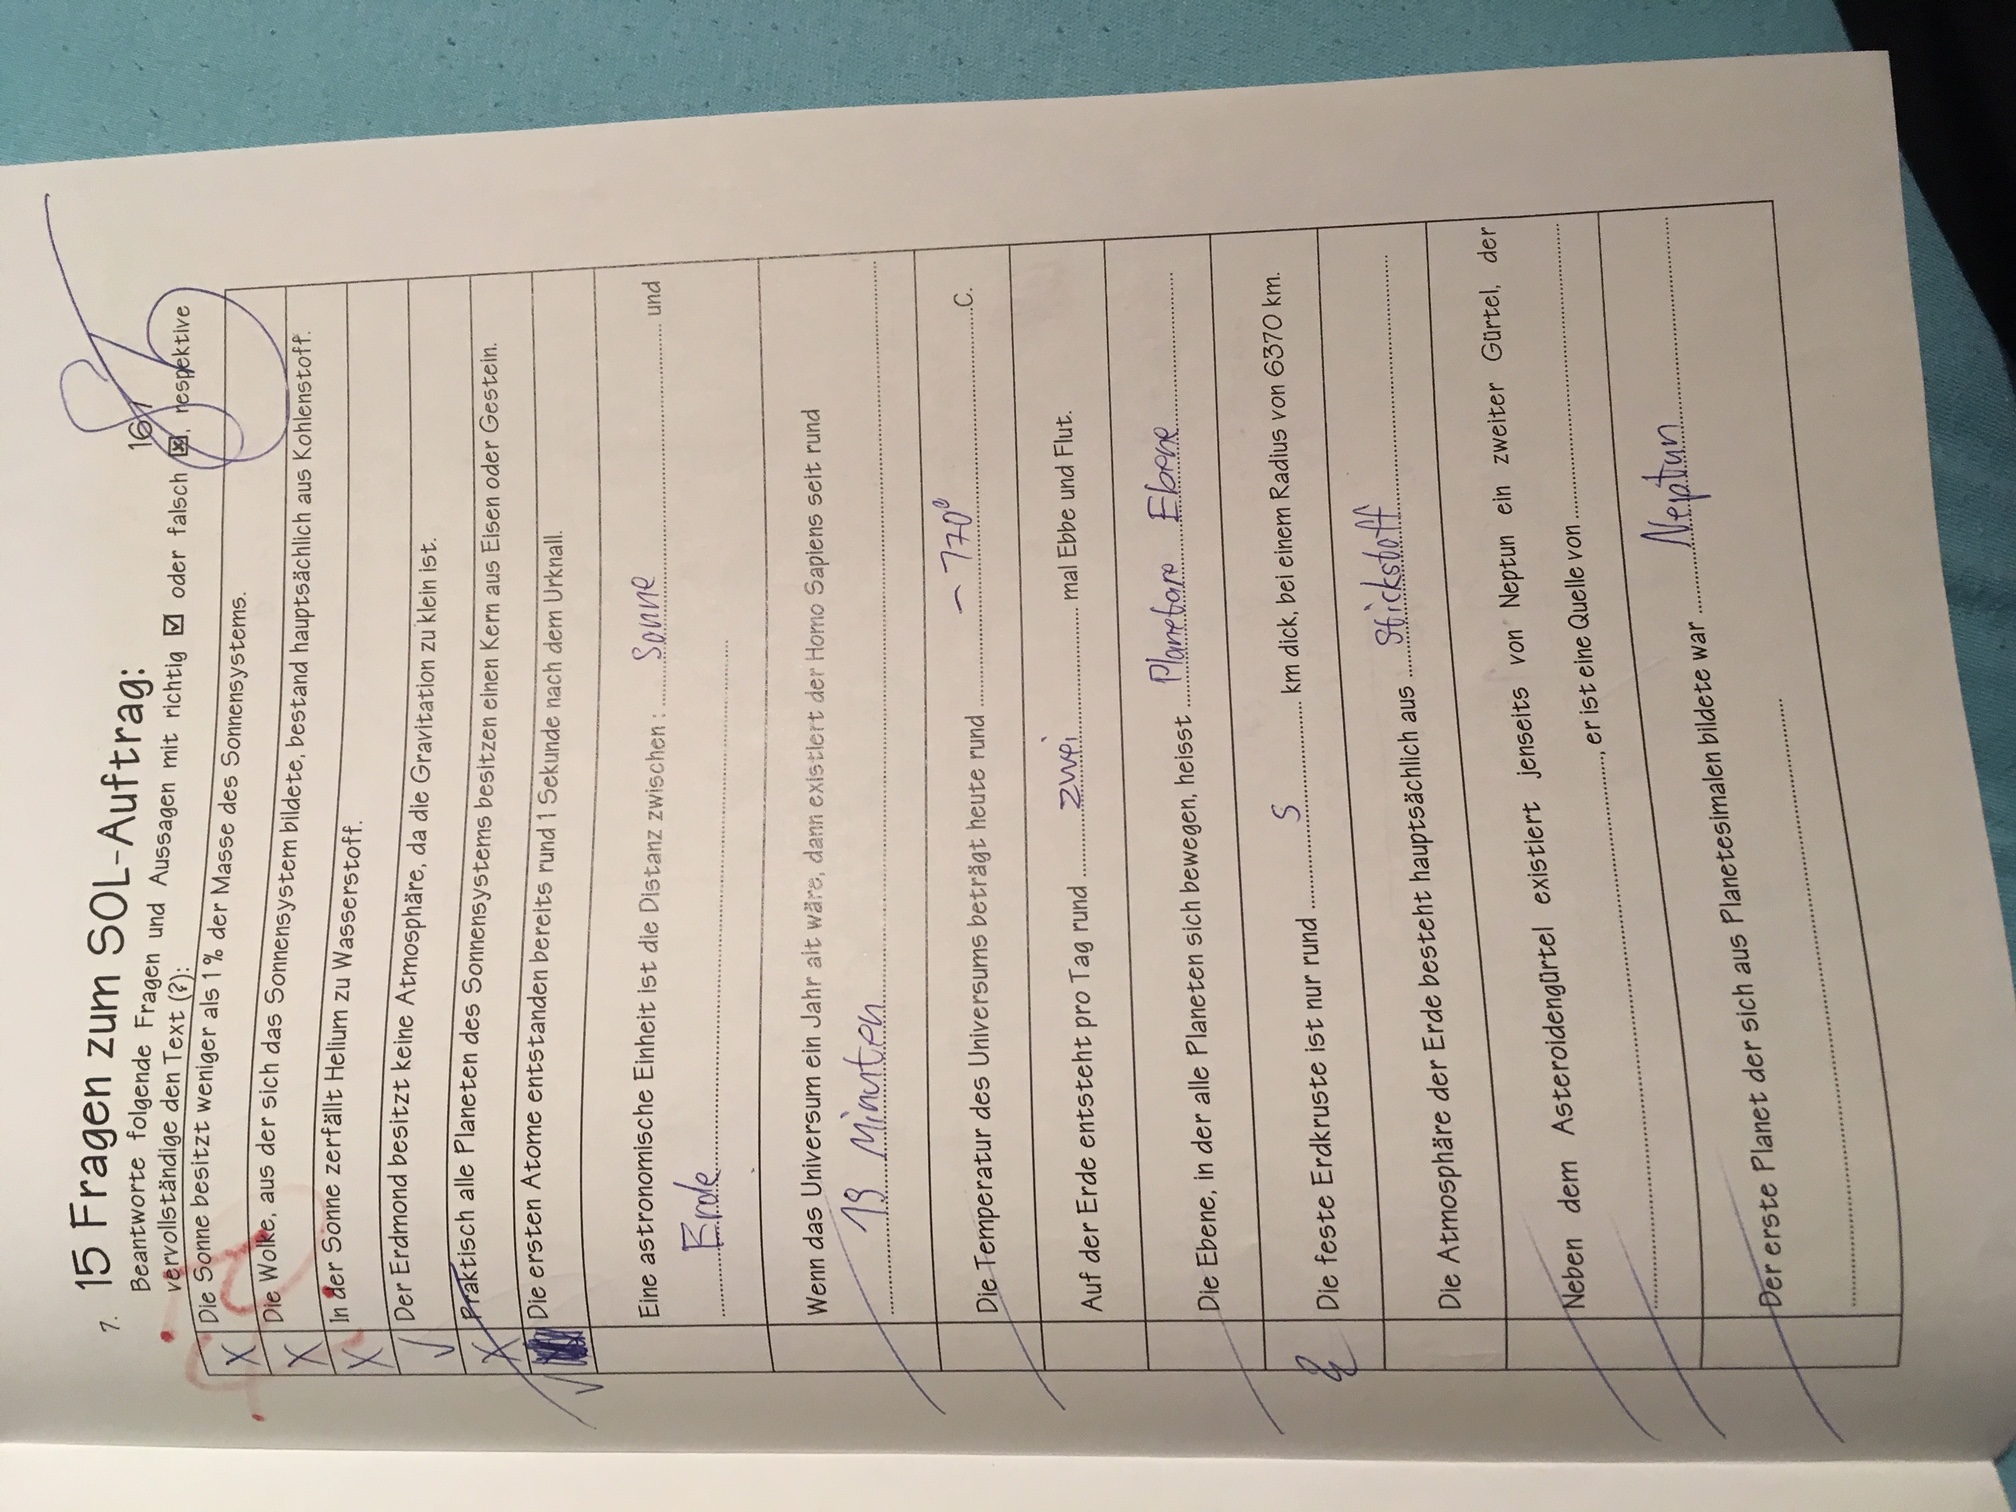 7. 15 Fragen zum SOL-Auftrag:
Beantworte folgende Fragen und Aussagen mit richtig ☑ oder falsch ☒, respektive
vervollständige den Text (?):
X Die Sonne besitzt weniger als 1 % der Masse des Sonnensystems.
X Die Wolke, aus der sich das Sonnensystem bildete, bestand hauptsächlich aus Kohlenstoff.
X In der Sonne zerfällt Helium zu Wasserstoff.
✓ Der Erdmond besitzt keine Atmosphäre, da die Gravitation zu klein ist.
X Praktisch alle Planeten des Sonnensystems besitzen einen Kern aus Eisen oder Gestein.
✓ Die ersten Atome entstanden bereits rund 1 Sekunde nach dem Urknall.
Eine astronomische Einheit ist die Distanz zwischen : Sonne und
Erde
Wenn das Universum ein Jahr alt wäre, dann existiert der Homo Sapiens seit rund
19 Minuten
Die Temperatur des Universums beträgt heute rund -170° C.
Auf der Erde entsteht pro Tag rund zwei mal Ebbe und Flut.
Die Ebene, in der alle Planeten sich bewegen, heisst Planetare Ebene
Die feste Erdkruste ist nur rund 5 km dick, bei einem Radius von 6370 km.
Die Atmosphäre der Erde besteht hauptsächlich aus Stickstoff
Neben dem Asteroidengürtel existiert jenseits von Neptun ein zweiter Gürtel, der
, er ist eine Quelle von
Der erste Planet der sich aus Planetesimalen bildete war Neptun